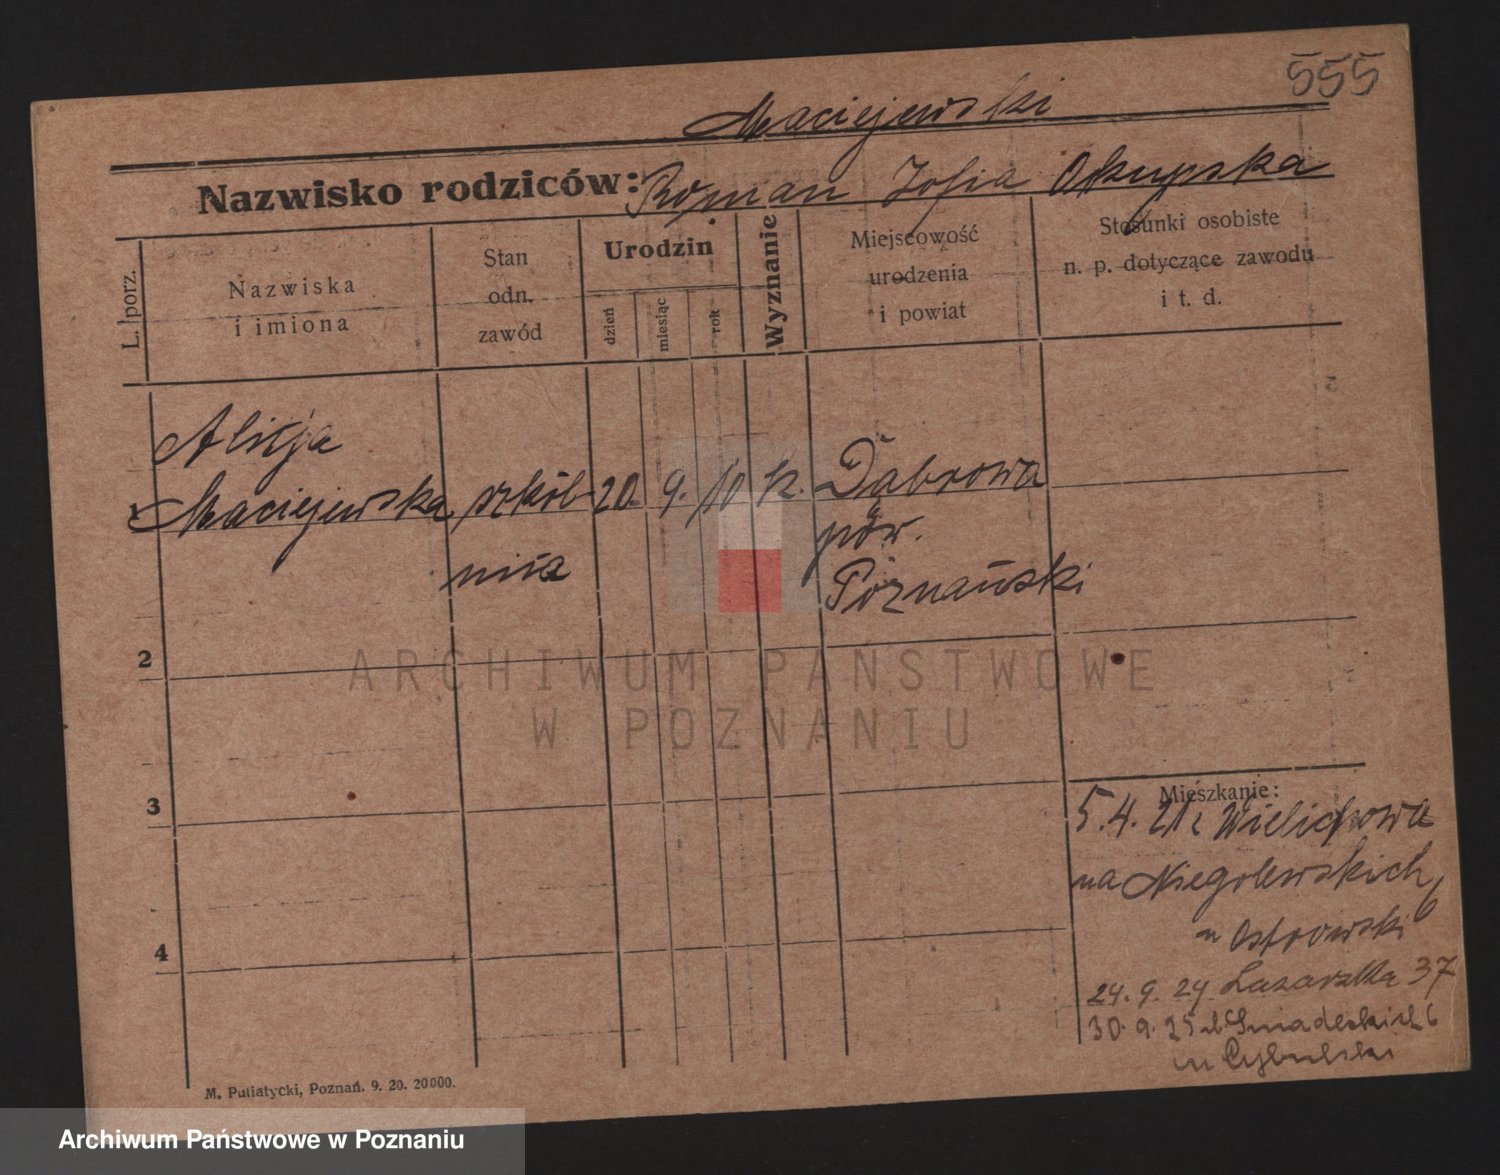 555
Maciejewski
Nazwisko rodziców: Roman Zofia Okupska
L. porz.
Nazwiska
i imiona
Stan
odn.
zawód
Urodzin
dzień
miesiąc
rok
Wyznanie
Miejscowość
urodzenia
i powiat
Stosunki osobiste
n. p. dotyczące zawodu
i t. d.
Alicja
1 Maciejewska szkól 20. 9. 10 k. Dąbrowa
nica pow.
Poznański
2
3
4
Mieszkanie:
5.4.21 z Wielichowa
na Niegolewskich 6
u Ostrowski
24.9.24 Lazarska 37
30.9.25 Śniadeckich 6
u Cybulski
M. Putiatycki, Poznań. 9. 20. 20000.
ARCHIWUM PAŃSTWOWE
W POZNANIU
Archiwum Państwowe w Poznaniu